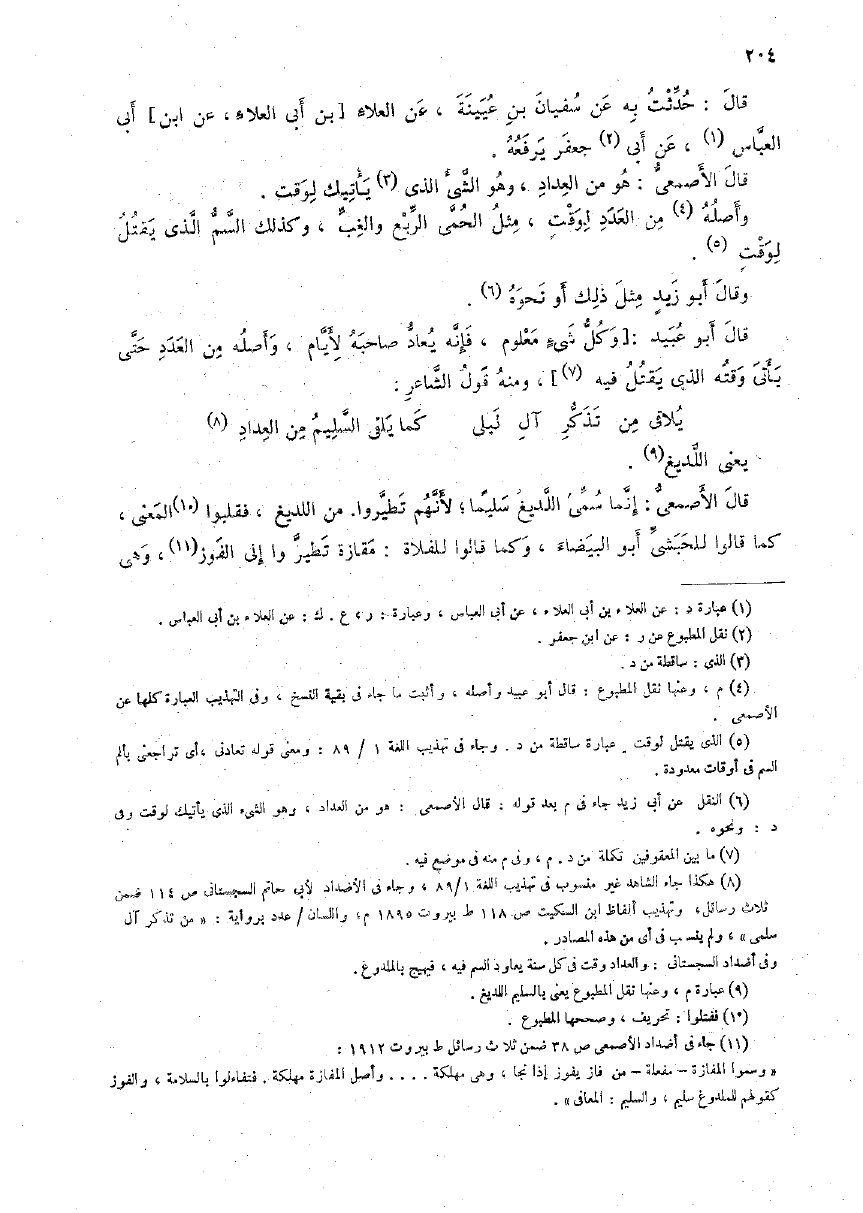 ٢٠٤
قالَ : حُدِّثْتُ بِه عَن سُفيانَ بنِ عُيَينَةَ ، عَن العلاءِ [ بن أَبى العلاء ، عن ابن ] أَبى
العبَّاس (١) ، عَن أَبى (٢) جعفَر يَرفَعُهُ .
قالَ الأَصمعىُّ : هُو من العِدادِ ، وهُو الشَّىْءُ الذى (٣) يَأْتِيك لِوَقت .
وأَصلُهُ (٤) مِن العَدَدِ لِوَقْتٍ ، مِثلُ الحُمَّى الرِّبْع والغِبِّ ، وكذلك السَّمُّ الَّذى يَقتُلُ
لِوَقْتٍ (٥) .
وقالَ أَبو زَيدٍ مِثلَ ذلِك أَو نَحوَهُ (٦) .
قالَ أَبو عُبَيد : [ وَكُلُّ شَىءٍ مَعْلوم ، فَإِنَّه يُعادُّ صاحبَهُ لِأَيَّام ، وَأَصلُه مِن العَدَدِ حَتَّى
يَأْتَىَ وَقتُه الذى يَقتُلُ فيه (٧) ] ، ومنهُ قَولُ الشَّاعرِ :
يُلاقى مِن تَذَكُّرِ آلِ لَيلى كَما يَلقى السَّلِيمُ مِن العِدادِ (٨)
يعنى اللَّديغ (٩) .
قالَ الأَصمعىُّ : إِنَّما سُمِّىَ اللَّديغُ سَليمًا ؛ لأَنَّهُم تَطيَّروا. من اللديغ ، فقلبوا (١٠) المَعْنى ،
كما قالوا للحَبَشىِّ أَبو البيَضاءَ ، وَكما قالوا للفلاة : مَفازة تَطيرَّ وا إِلى الفَوز (١١) ، وَهى
(١) عبارة د : عن العلاء بن أبى العلاء ، عن أبى العباس ، وعبارة : ر ، ع . ك : عن العلاء بن أبى العباس .
(٢) نقل المطبوع عن ر : عن ابن جعفر .
(٣) الذى : ساقطة من د .
(٤) م ، وعنها نقل المطبوع : قال أبو عبيد وأصله ، وأثبت ما جاء فى بقية النسخ ، وفى التهذيب العبارة كلها عن
الأصمعى .
(٥) الذى يقتل لوقت . عبارة ساقطة من د . وجاء فى تهذيب اللغة ١ / ٨٩ : ومعنى قوله تعادنى ،أى تراجعنى بألم
السم فى أوقات معدودة .
(٦) النقل عن أبى زيد جاء فى م بعد قوله : قال الأصمعى : هو من العداد ، وهو الشىء الذى يأتيك لوقت وفى
د : ونحوه .
(٧) ما بين المعقوفين تكملة من د . م ، وفى م منه فى موضع فيه .
(٨) هكذا جاء الشاهد غير منسوب فى تهذيب اللغة ٨٩/١ ، وجاء فى الأضداد لأبى حاتم السجستانى ص ١١٤ ضمن
ثلاث رسائل، وتهذيب ألفاظ ابن السكيت ص ١١٨ ط بيروت ١٨٩٥ م، واللسان / عدد برواية : « من تذكر آل
سلمى » ، ولم ينسب فى أى من هذه المصادر .
وفى أضداد السجستانى : والعداد وقت فى كل سنة يعاود السم فيه ، فيهيج بالملدوغ.
(٩) عبارة م ، وعنها نقل المطبوع يعنى بالسليم اللديغ .
(١٠) فقتلوا : تحريف ، وصححها المطبوع .
(١١) جاء فى أضداد الأصمعى ص ٣٨ ضمن ثلاث رسائل ط بيروت ١٩١٢ :
« وسموا المفازة – مفعلة – من فاز يفوز إذا نجا ، وهى مهلكة .... وأصل المفازة مهلكة . فتفاءلوا بالسلامة ، والفوز
كقولهم للملدوغ سليم ، والسليم : المعافى » .